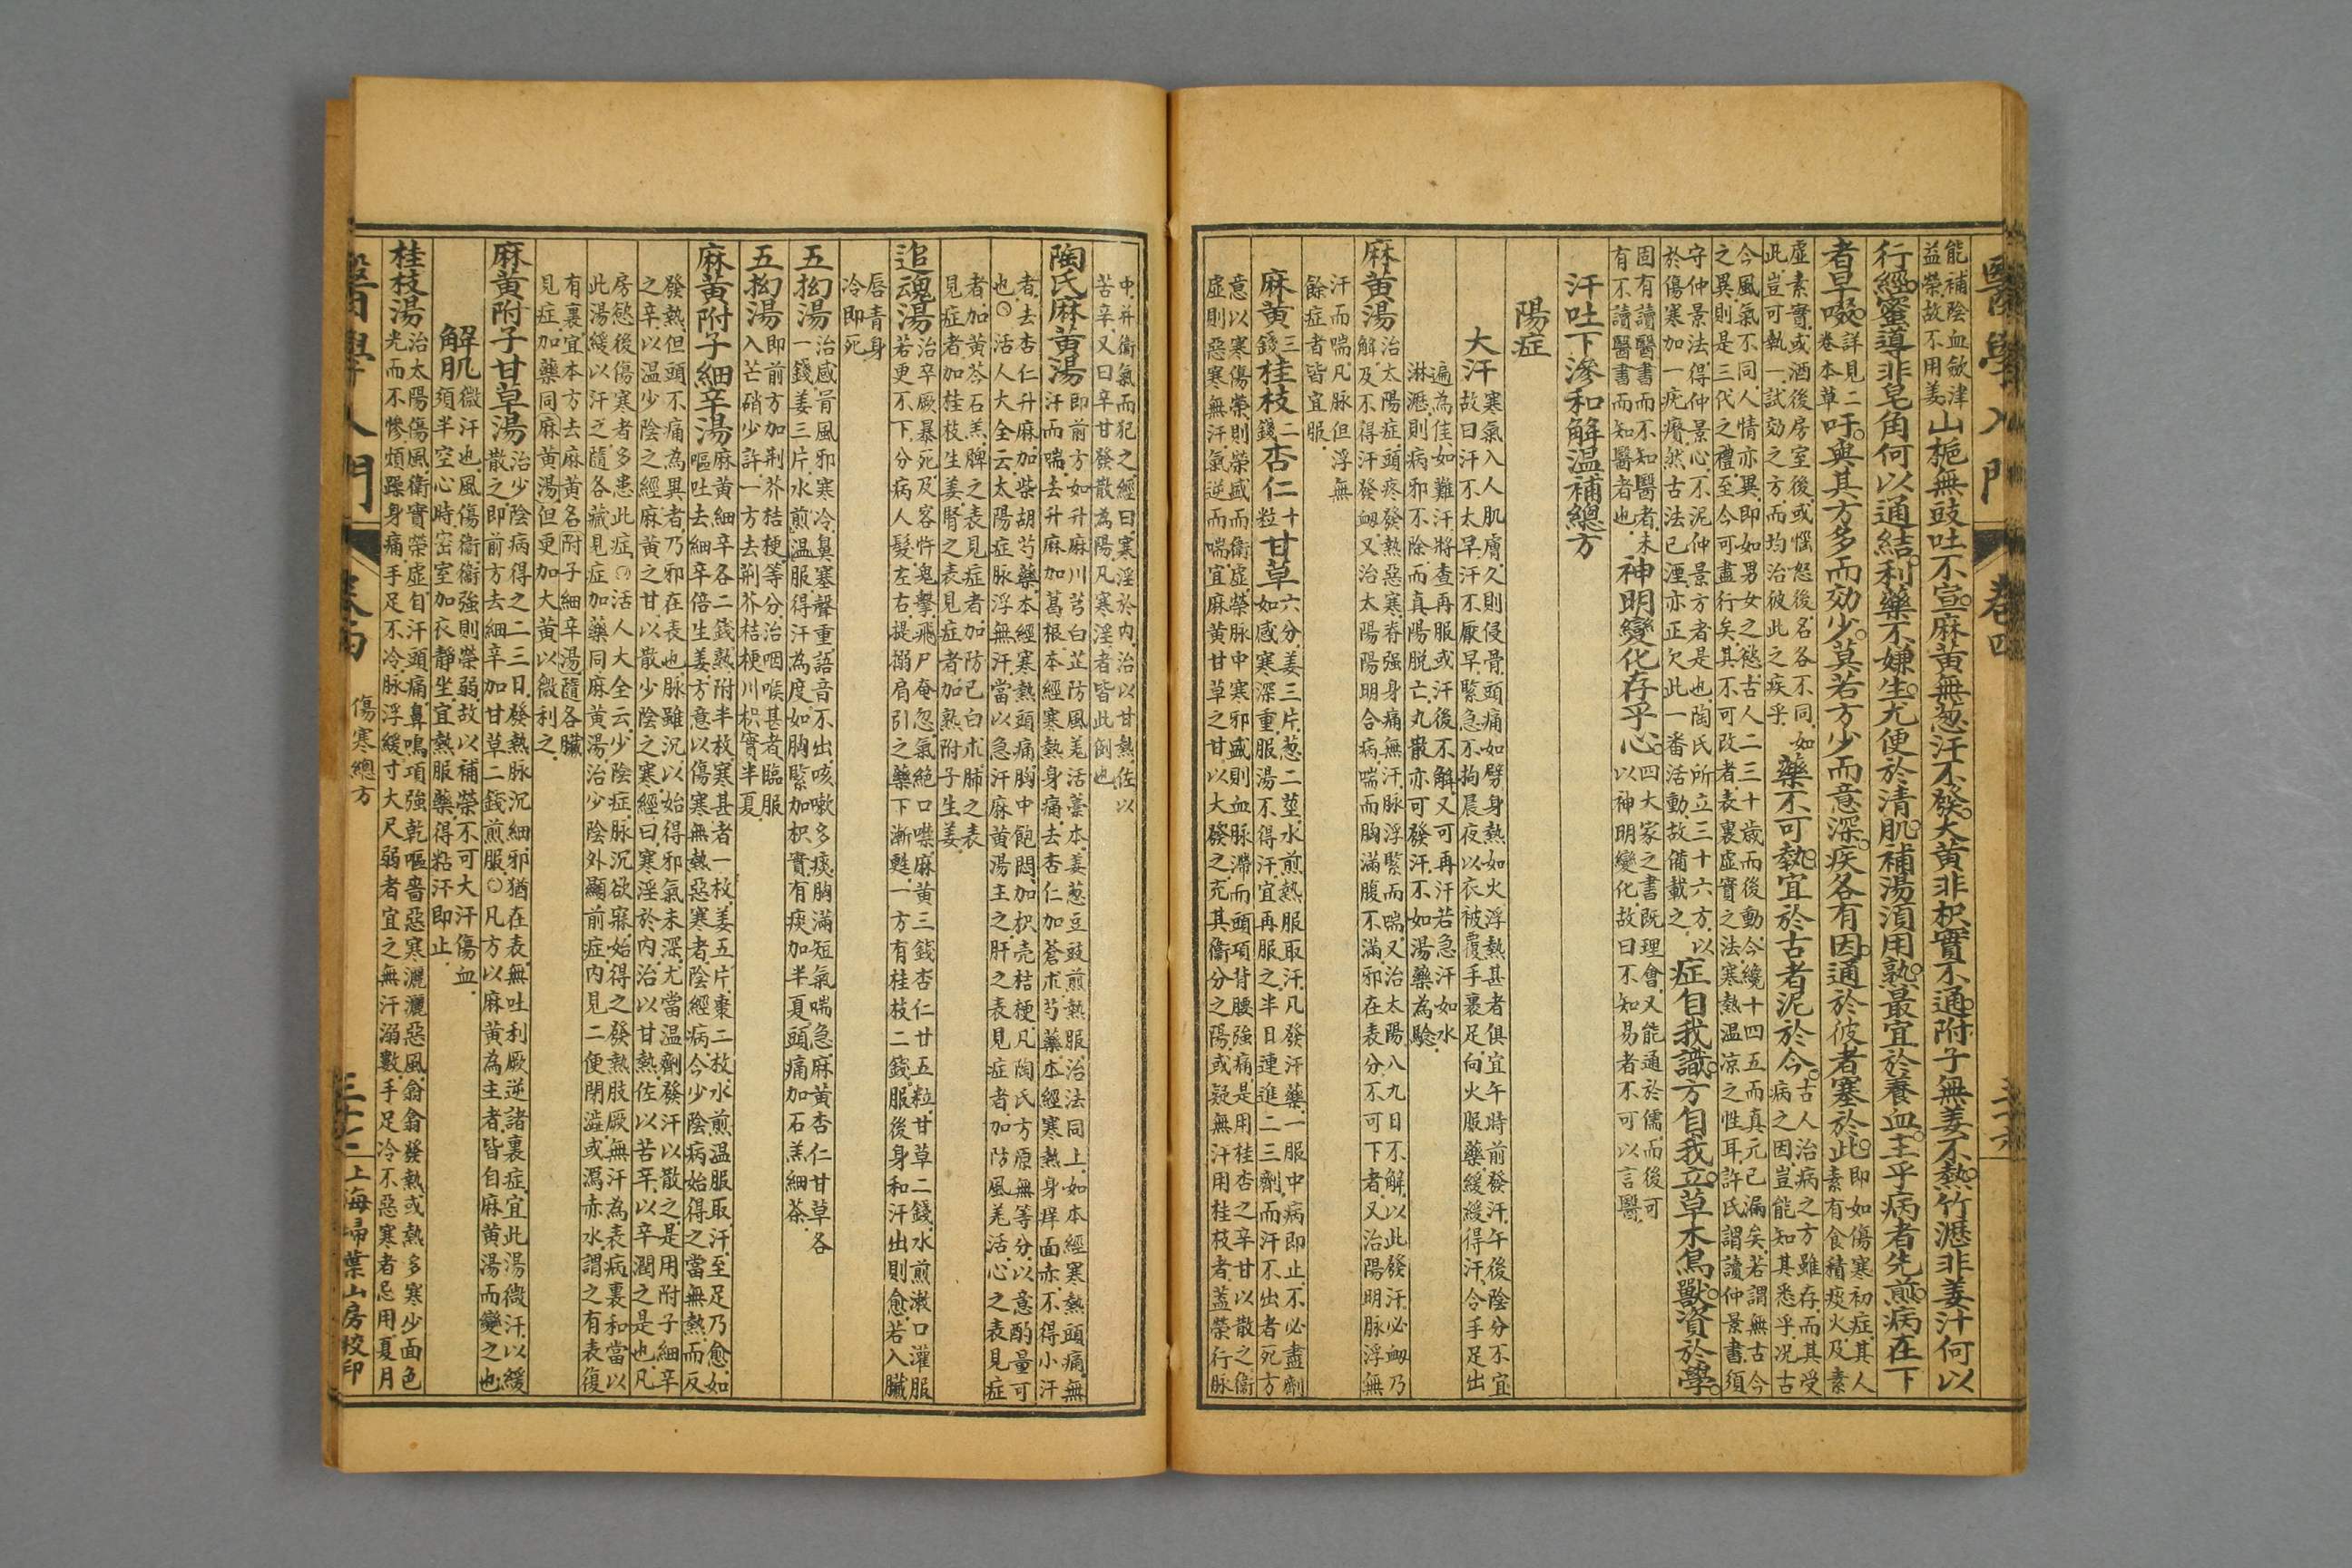 醫學入門 卷四 三十六
能補陰血歛津益榮故不用姜山梔無豉吐不宣麻黃無葱汗不發大黃非枳實不通附子無姜不熱竹瀝非姜汁何以
行經蜜導非皂角何以通結利藥不嫌生尤便於清肌補湯須用熟最宜於養血主乎病者先煎病在下
者早啜詳見二卷本草吁與其方多而効少莫若方少而意深疾各有因通於彼者塞於此即如傷寒初症其人素有食積痰火及素
虛素實或酒後房室後或惱怒後名各不同如此豈可執一試効之方而均治彼此之疾乎藥不可執宜於古者泥於今古人治病之方雖存而其受病之因豈能知其悉乎况古
今風氣不同人情亦異即如男女之慾古人二三十歲而後動今纔十四五而真元已漏矣若謂無古今之異則是三代之禮至今可盡行矣其不可改者表裏虛實之法寒熱温凉之性耳許氏謂讀仲景書須
守仲景法得仲景心不泥仲景方者是也陶氏所立三十六方以於傷寒加一疣然古法已湮亦正欠此一番活動故備載之症自我識方自我立草木鳥獸資於學
固有讀醫書而不知醫者未有不讀醫書而知醫者也神明變化存乎心四大家之書既理會又能通於儒而後可以神明變化故曰不知易者不可以言醫
汗吐下滲和解温補總方
陽症
大汗寒氣入人肌膚久則侵骨頭痛如劈身熱如火浮熱甚者俱宜午時前發汗午後陰分不宜故曰汗不太早汗不厭早緊急不拘晨夜以衣被覆手裹足向火服藥緩緩得汗令手足出
遍為佳如難汗將查再服或汗後不解又可再汗若急汗如水淋瀝則病邪不除而真陽脫亡丸散亦可發汗不如湯藥為驗
麻黃湯治太陽症頭疼發熱惡寒脊强身痛無汗脉浮緊而喘又治太陽八九日不解以此發汗必衂乃解及不得汗發衂又治太陽陽明合病喘而胸滿腹不滿邪在表分不可下者又治陽明脉浮無
汗而喘凡脉但浮無餘症者皆宜服
麻黃三錢桂枝二錢杏仁十粒甘草六分姜三片葱二莖水煎熱服取汗凡發汗藥一服中病即止不必盡劑如感寒深重服湯不得汗宜再服之半日連進二三劑而汗不出者死方
意以寒傷榮則榮盛而衞虛榮脉中寒邪盛則血脉滯而頭項背腰強痛是用桂杏之辛甘以散之衞虛則惡寒無汗氣逆而喘宜麻黃甘草之甘以大發之充其衞分之陽或疑無汗用桂枝者蓋榮行脉
中并衞氣而犯之經曰寒淫於内治以甘熱佐以苦辛又曰辛甘發散為陽凡寒淫者皆此倒也
陶氏麻黃湯即前方如升麻川芎白芷防風羌活藁本姜葱豆豉煎熱服治法同上如本經寒熱頭痛無汗而喘去升麻加葛根本經寒熱身痛去杏仁加蒼朮芍藥本經寒熱身痒面赤不得小汗
者去杏仁升麻加柴胡芍藥本經寒熱頭痛胸中飽悶加枳壳桔梗凡陶氏方原無等分以意酌量可也○活人大全云太陽症脉浮無汗當以急汗麻黃湯主之肝之表見症者加防風羌活心之表見症
者加黃芩石羔脾之表見症者加防已白朮肺之表見症者加桂枝生姜腎之表見症者加熟附子生姜
追魂湯治卒厥暴死及客忤鬼擊飛尸奄忽氣絕口噤麻黃三錢杏仁廿五粒甘草二錢水煎漱口灌服若更不下分病人髮左右提搦肩引之藥下漸甦一方有桂枝二錢服後身和汗出則愈若入臟
唇青身冷即死
五拗湯治感冒風邪寒冷鼻塞聲重語音不出咳嗽多痰胸滿短氣喘急麻黃杏仁甘草各一錢姜三片水煎温服得汗為度如胸緊加枳實有痰加半夏頭痛加石羔細茶
五拗湯即前方加荆芥桔梗等分治咽喉甚者臨服入芒硝少許一方去荆芥桔梗川枳實半夏
麻黃附子細辛湯麻黃細辛各二錢熟附半枚寒甚者一枚姜五片棗二枚水煎温服取汗至足乃愈如嘔吐去細辛倍生姜方意以傷寒無熱惡寒者陰經病今少陰病始得之當無熱而反
發熱但頭不痛為異者乃邪在表也脉雖沉以始得邪氣未深尤當温劑發汗以散之是用附子細辛之辛以温少陰之經麻黃之甘以散少陰之寒經曰寒淫於内治以甘熱佐以苦辛以辛潤之是也凡
房慾後傷寒者多患此症○活人大全云少陰症脉沉欲寐始得之發熱肢厥無汗為表病裏和當以此湯緩以汗之隨各藏見症加藥同麻黃湯治少陰外顯前症内見二便閉澁或瀉赤水謂之有表復
有裏宜本方去麻黃名附子細辛湯隨各臟見症加藥同麻黃湯但更加大黃以微利之
麻黃附子甘草湯治少陰病得之二三日發熱脉沉細邪猶在表無吐利厥逆諸裏症宜此湯微汗以緩散之即前方去細辛加甘草二錢煎服○凡方以麻黃為主者皆自麻黃湯而變之也
解肌微汗也風傷衞衞強則榮弱故以補榮不可大汗傷血須半空心時密室加衣靜坐宜熱服藥得粘汗即止
桂枝湯治太陽傷風衞實榮虛自汗頭痛鼻鳴項強乾嘔嗇嗇惡寒灑灑惡風翕翕發熱或熱多寒少面色光而不慘煩躁身痛手足不冷脉浮緩寸大尺弱者宜之無汗溺數手足冷不惡寒者忌用夏月
醫學入門 傷寒總方 上海掃葉山房校印